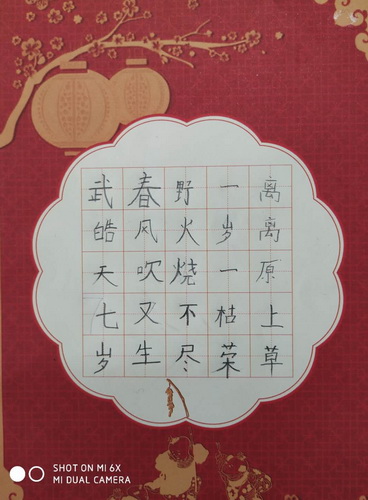 离离原上草
一岁一枯荣
野火烧不尽
春风吹又生
武皓天七岁
SHOT ON MI 6X
MI DUAL CAMERA